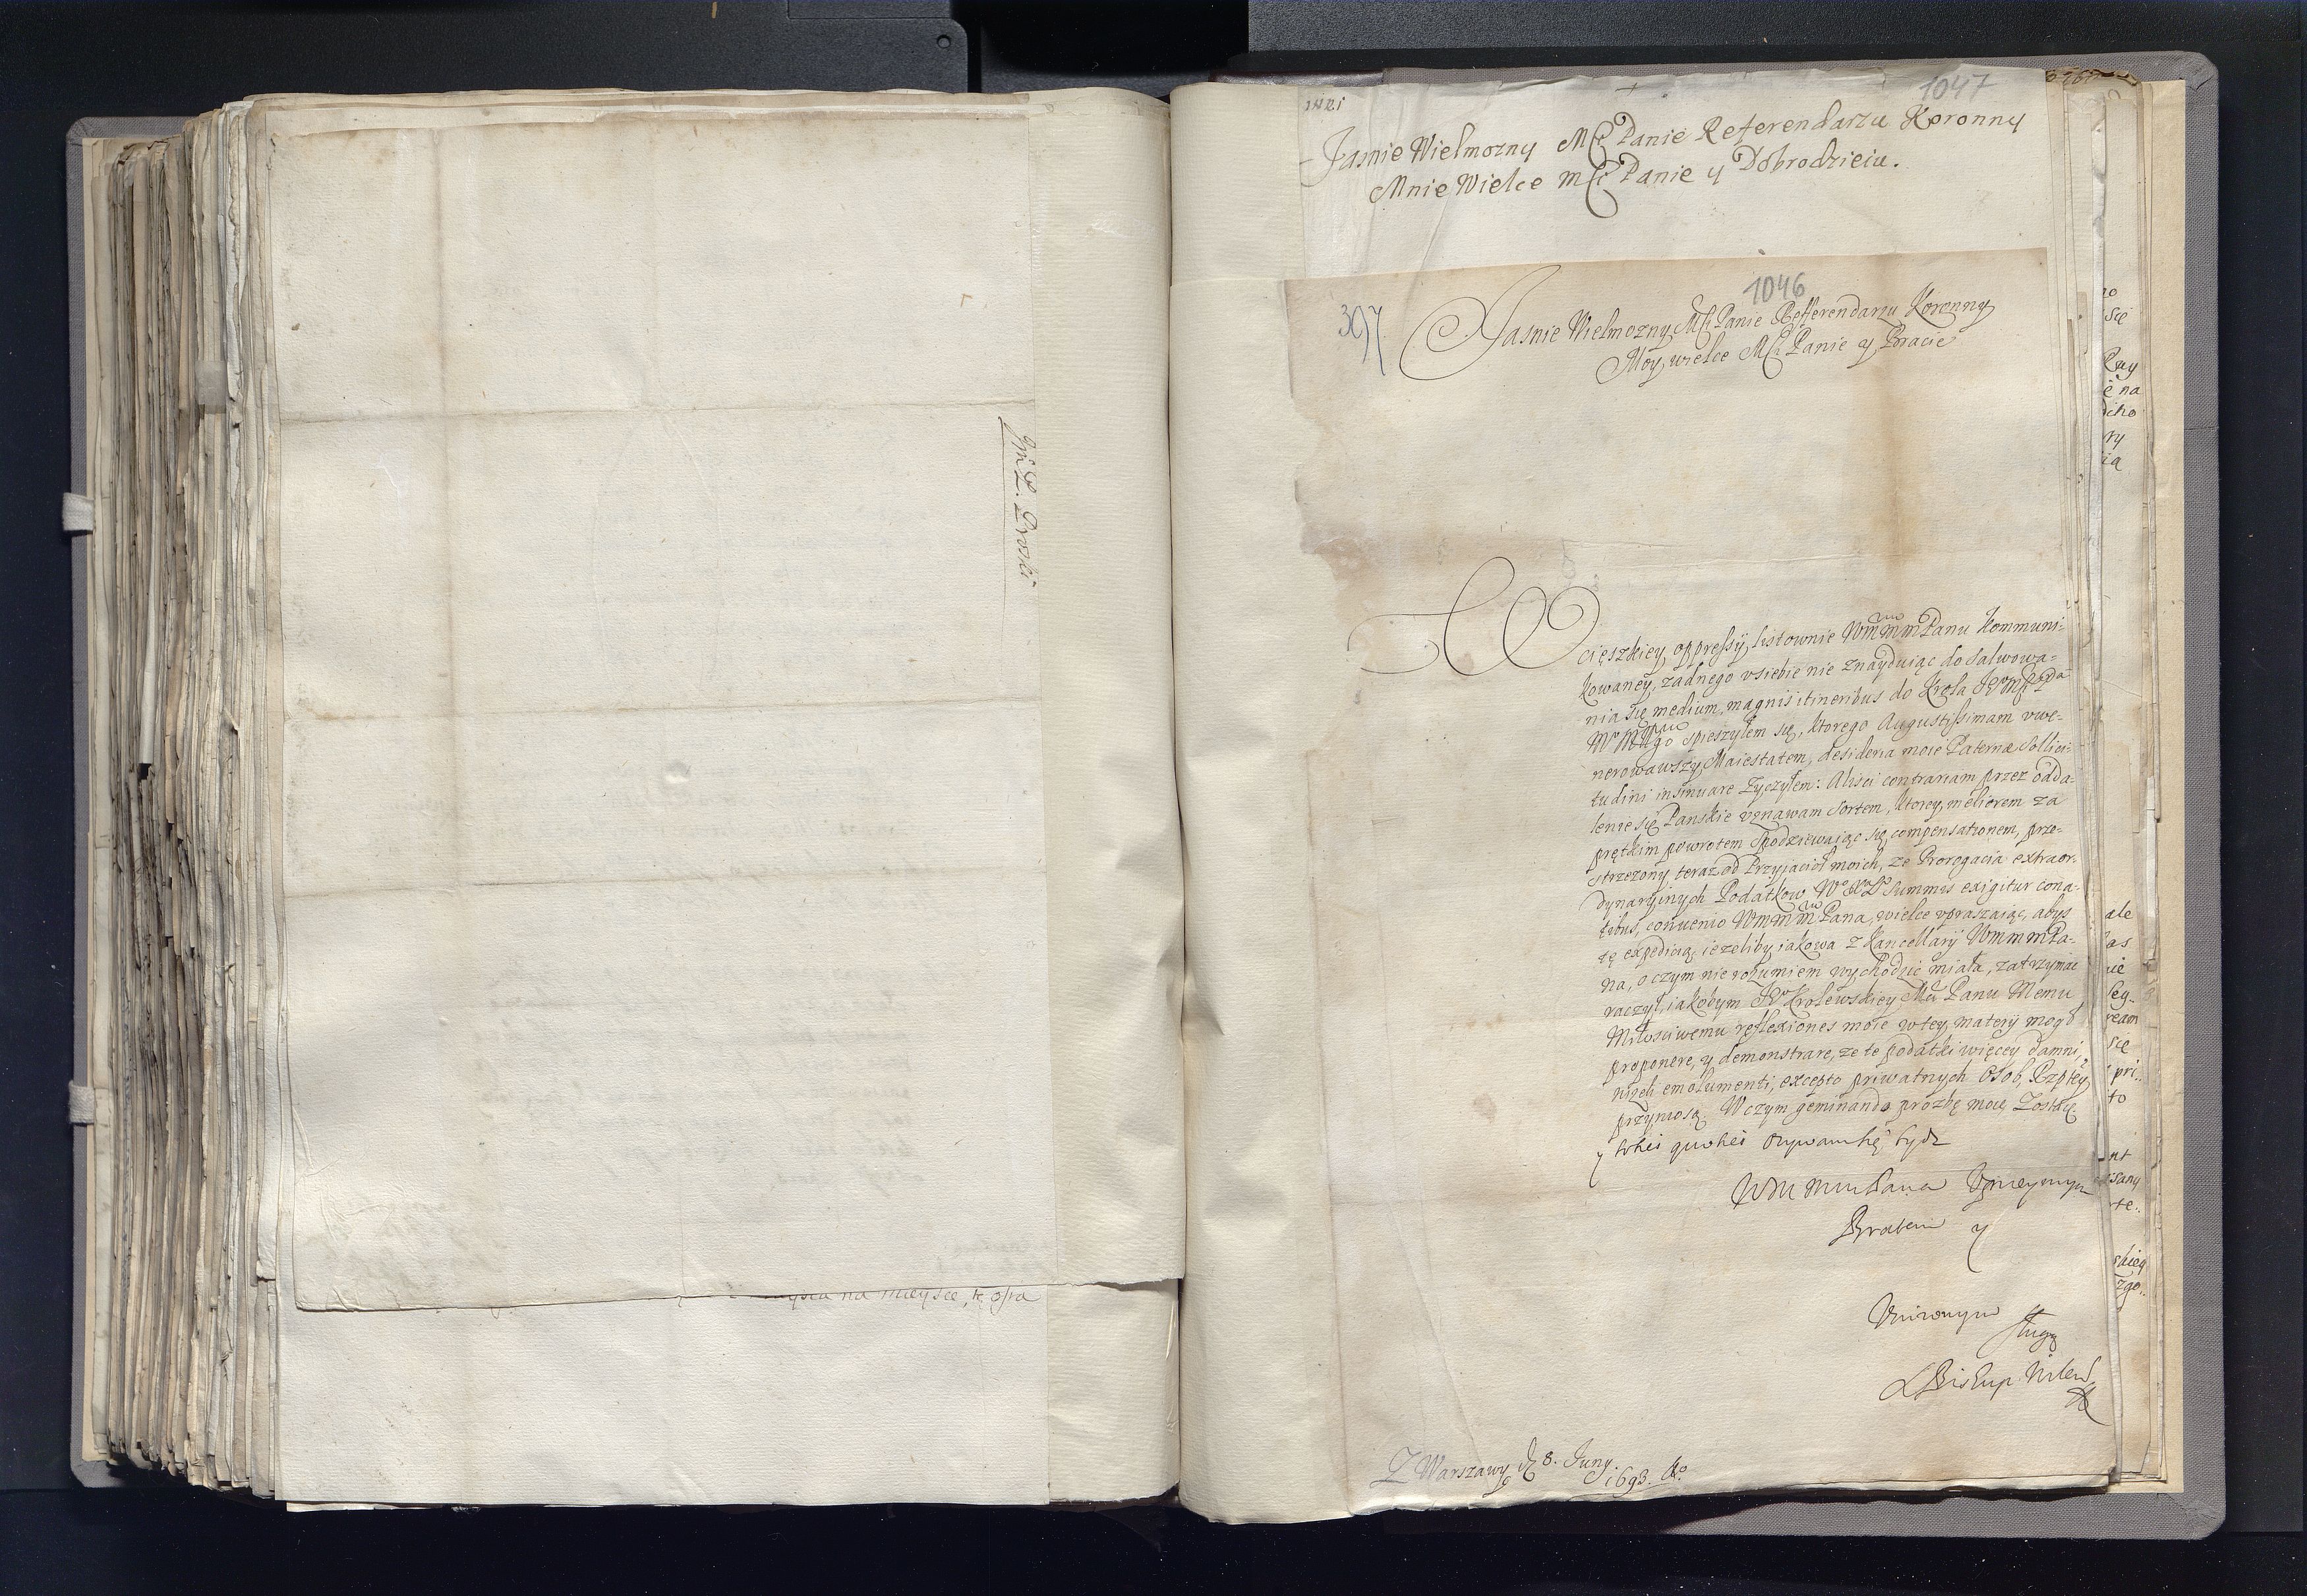 Jmć P. Proski
mieysca na mieysce, te
1047
Jasnie Wielmozny MCi Panie Referendarzu Koronny
Mnie Wielce mCi Panie y Dobrodzieiu.
1046
397
Jasnie Wielmozny MCi Panie Refferendarzu Koronny
Moy wielce MCi Panie y Bracie
W cięszkiey oppressÿ, listownie WmmmPanu Kommuni-
kowaney, zadnego v siebie nie znayduiąc do salwowa-
nia się medium, magnis itineribus do Krola Je°MCi Pa
Me° Mgo spieszyłem się, ktorego Augustissimam vwe-
nerowawszy Maiestatem, desideria moie Paternæ Sollici-
tudini insinuare zyczyłem: Alisci contrariam przez odda-
lenie się Panskie vznawam sortem, ktorey meliorem za
prętkim powrotem spodziewaiąc się compensationem, prze-
strzezony teraz od Przyiacioł moich, ze Prorogacia extraor-
dynaryinych Podatkow W° X° L° summis exigitur cona-
tibus, conuenio WmmmPana, wielce vpraszaiąc, abys
tę expedicią, iezeliby iakowa z Kancellarÿ WmmmPa-
na, o czym nie rozumiem wychodzić miała, zatrzymac
raczył, iakobym Je° Krolewskiey Mci Panu Memu
Miłosciwemu reflexiones moie w tey materÿ mogł
proponere, y demonstrare, ze te podatki więcey damni,
nizeli emolumenti, excepto priwatnych Osob, Rzptey
przyniosą. W czym geminando prozbę moię Zostaię
y toties quoties ozywam się bydz
WM MM Pana Vprzeymym
Bratem y
Vnizonym
sługą
Biskup Wilen
Z Warszawy d 8. Juny
1693. A°